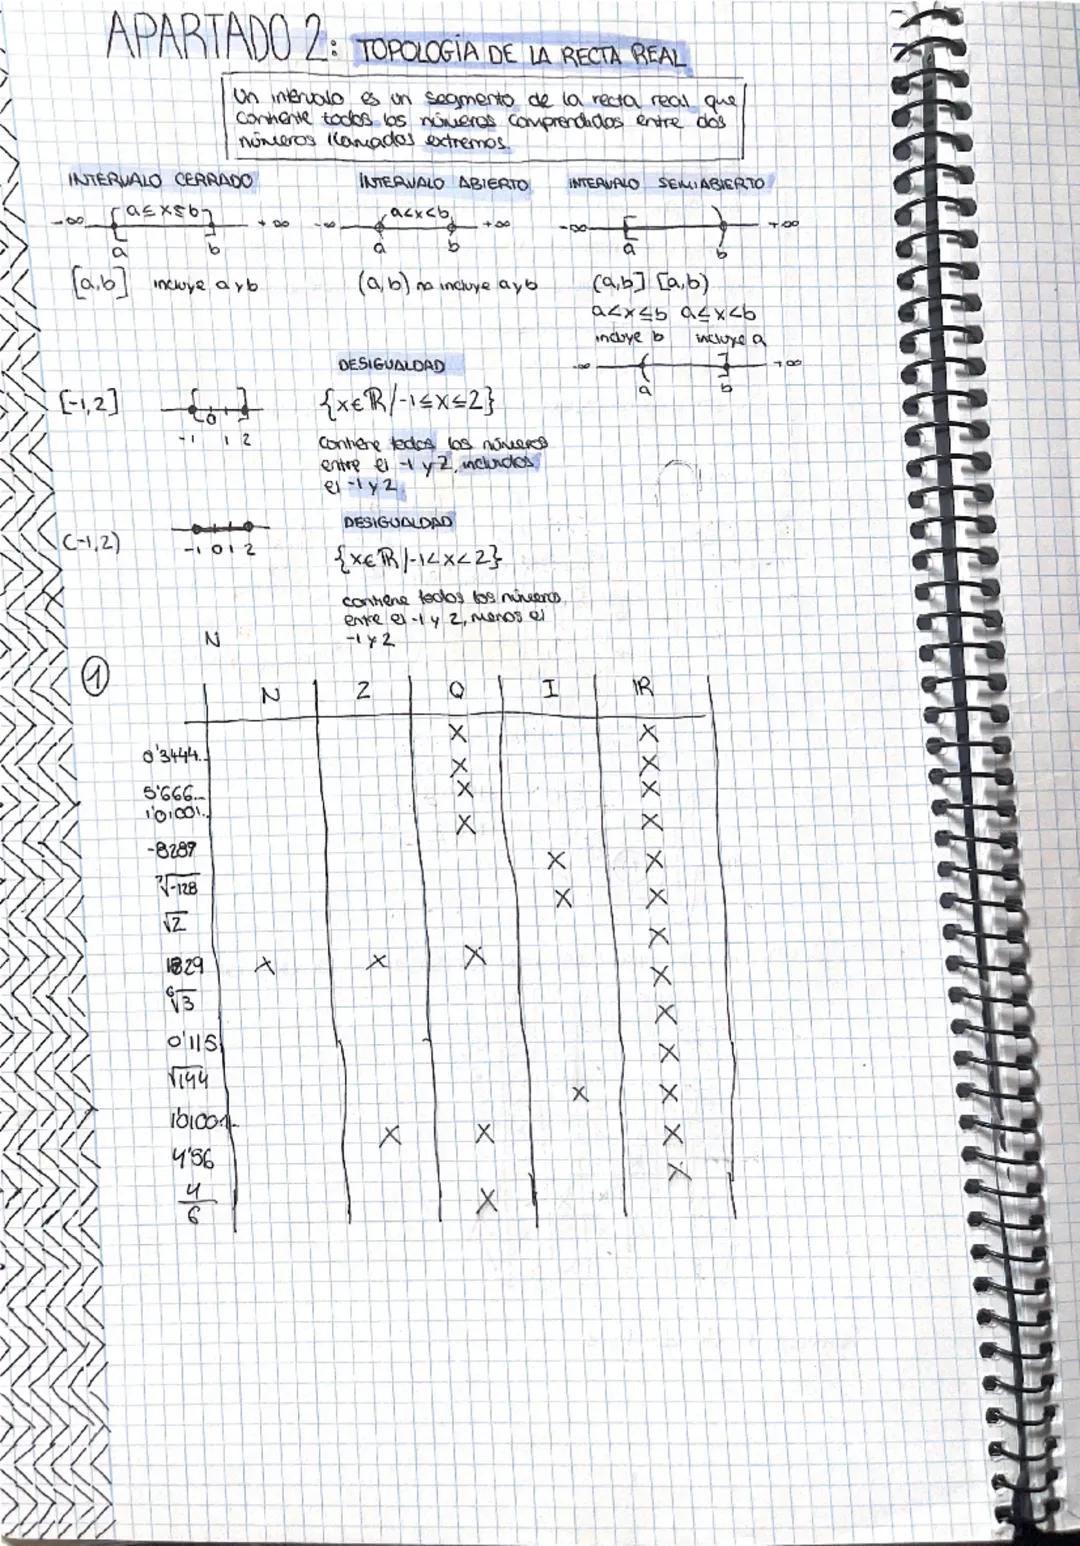 APARTADO 2: TOPOLOGÍA DE LA RECTA REAL
Un intervalo es un segmento de la recta real que
contiene todos los números comprendidos entre dos
números llamados extremos.
INTERVALO CERRADO INTERVALO ABIERTO INTERVALO SEMIABIERTO
-∞ [a≤x≤b] +∞ -∞ (a<x<b) +∞ -∞ [ ) +∞
a b a b a b
[a,b] incluye a y b (a,b) no incluye a y b (a,b] [a,b)
a<x≤b a≤x<b
incluye b incluye a
-∞ ( ] +∞
a b
DESIGUALDAD
[-1,2] [ 0 ] {x∈ℝ/-1≤x≤2}
-1 1 2
contiene todos los números
entre el -1 y 2, incluidos
el -1 y 2.
DESIGUALDAD
(-1,2) -1 0 1 2 {x∈ℝ/-1<x<2}
contiene todos los números,
entre el -1 y 2, menos el
-1 y 2
N
①
N Z Q I ℝ
X X
0'3444.. X X
5'666... X X
1'01001.. X X
-8289 X X
⁷√-128 X X
√2 X
1829 X X X X
⁶√3 X
0'115 X
√144 X X
101001.. X X X
4'56 X
4/6 X